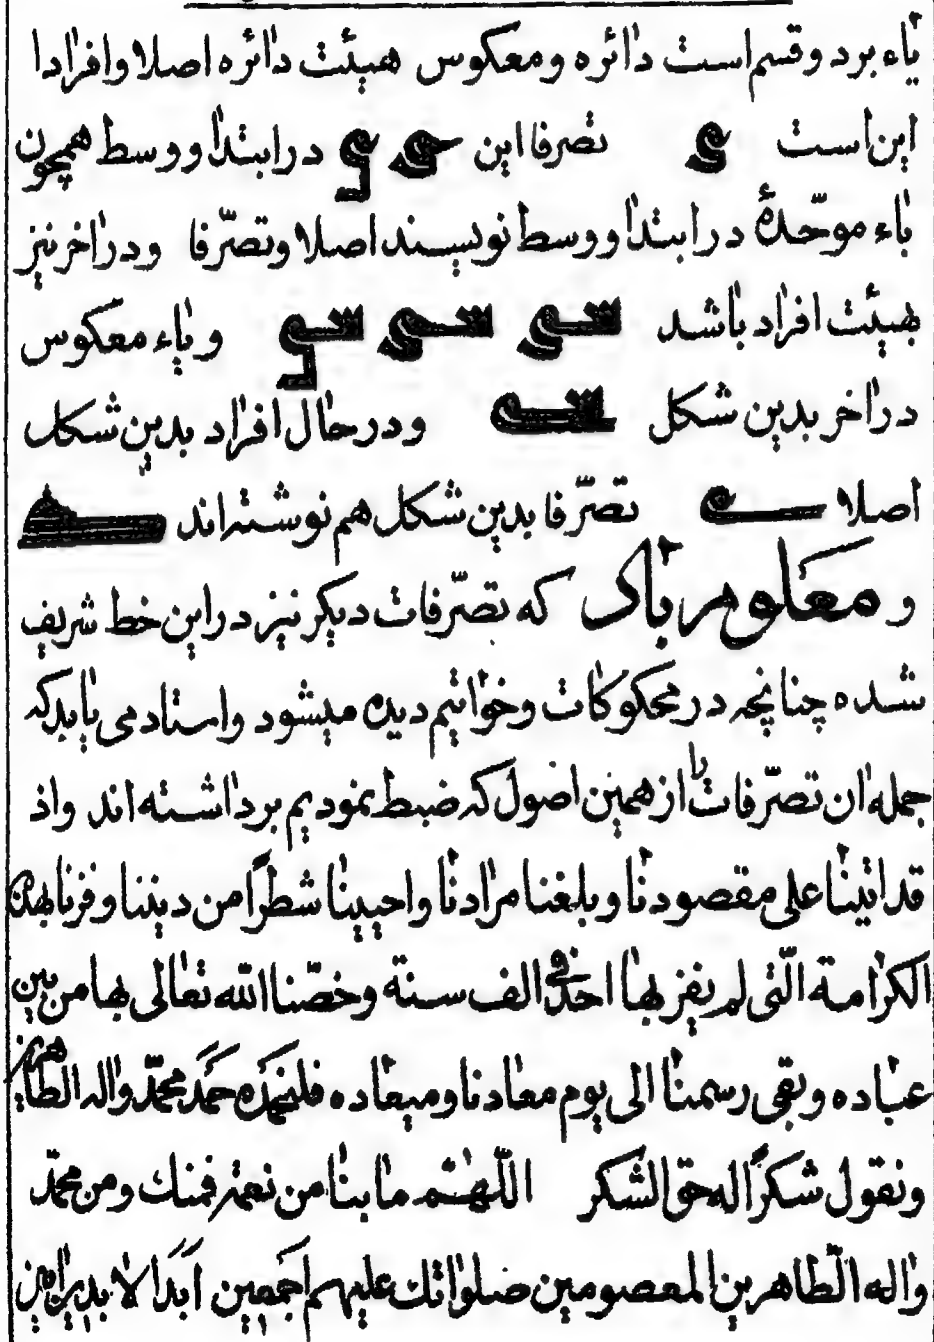 یاء برد وقسم است دائره ومعکوس هیئت دائره اصلا وافرادا
این است ی تصرفا این ی ی در ابتدا ووسط همچون
باء موحّدهٔ در ابتدا ووسط نویسند اصلا وتصرّفا ودر اخر نیز
بهیئت افراد باشد سی سی سی ویاء معکوس
در اخر بدین شکل ودر حال افراد بدین شکل
اصلا تصرّفا بدین شکل هم نوشته اند
و معلوم باد که تصرّفات دیکر نیز در این خط شریف
شده چنانچه در محکوکات وخواتیم دیده میشود واستاد می باید که
جمله ان تصرّفات را از همین اصول که ضبط نمودیم برداشته اند واذ
قد اتینا علی مقصودنا وبلغنا مرادنا واحیینا شطرًا من دیننا وفزنا بهذه
الکرامة الّتی لم یفز بها احد فی الف سنة وخصّنا الله تعالی بها من بین
عباده وبقی رسمنا الی یوم معادنا ومیعاده فلنحمده حمد محمّد واله الطاهرین
ونقول شکرًا له حق الشکر اللّهمّ ما بنا من نعمة فمنك ومن محمّد
واله الطّاهرین المعصومین صلواتك علیهم اجمعین ابدا لا